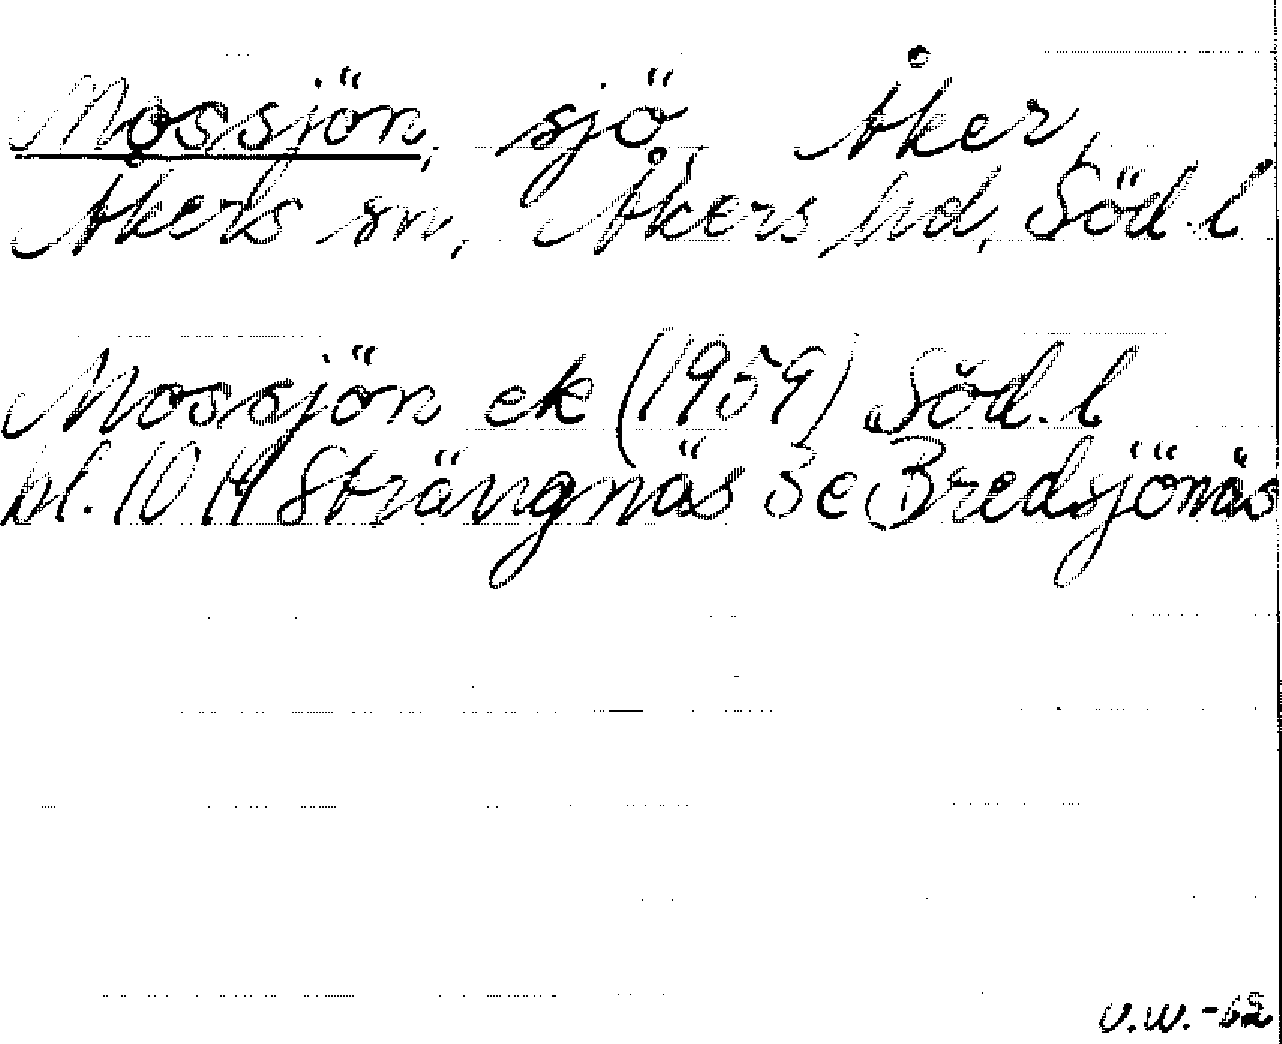 Mossjön, sjö Åker,
Åkers sn, Åkers hd, Söd. l
Mossjön ek (1959) Söd. l
bl. 10 H Strängnäs SE Bredsjönäs
V.W.-62